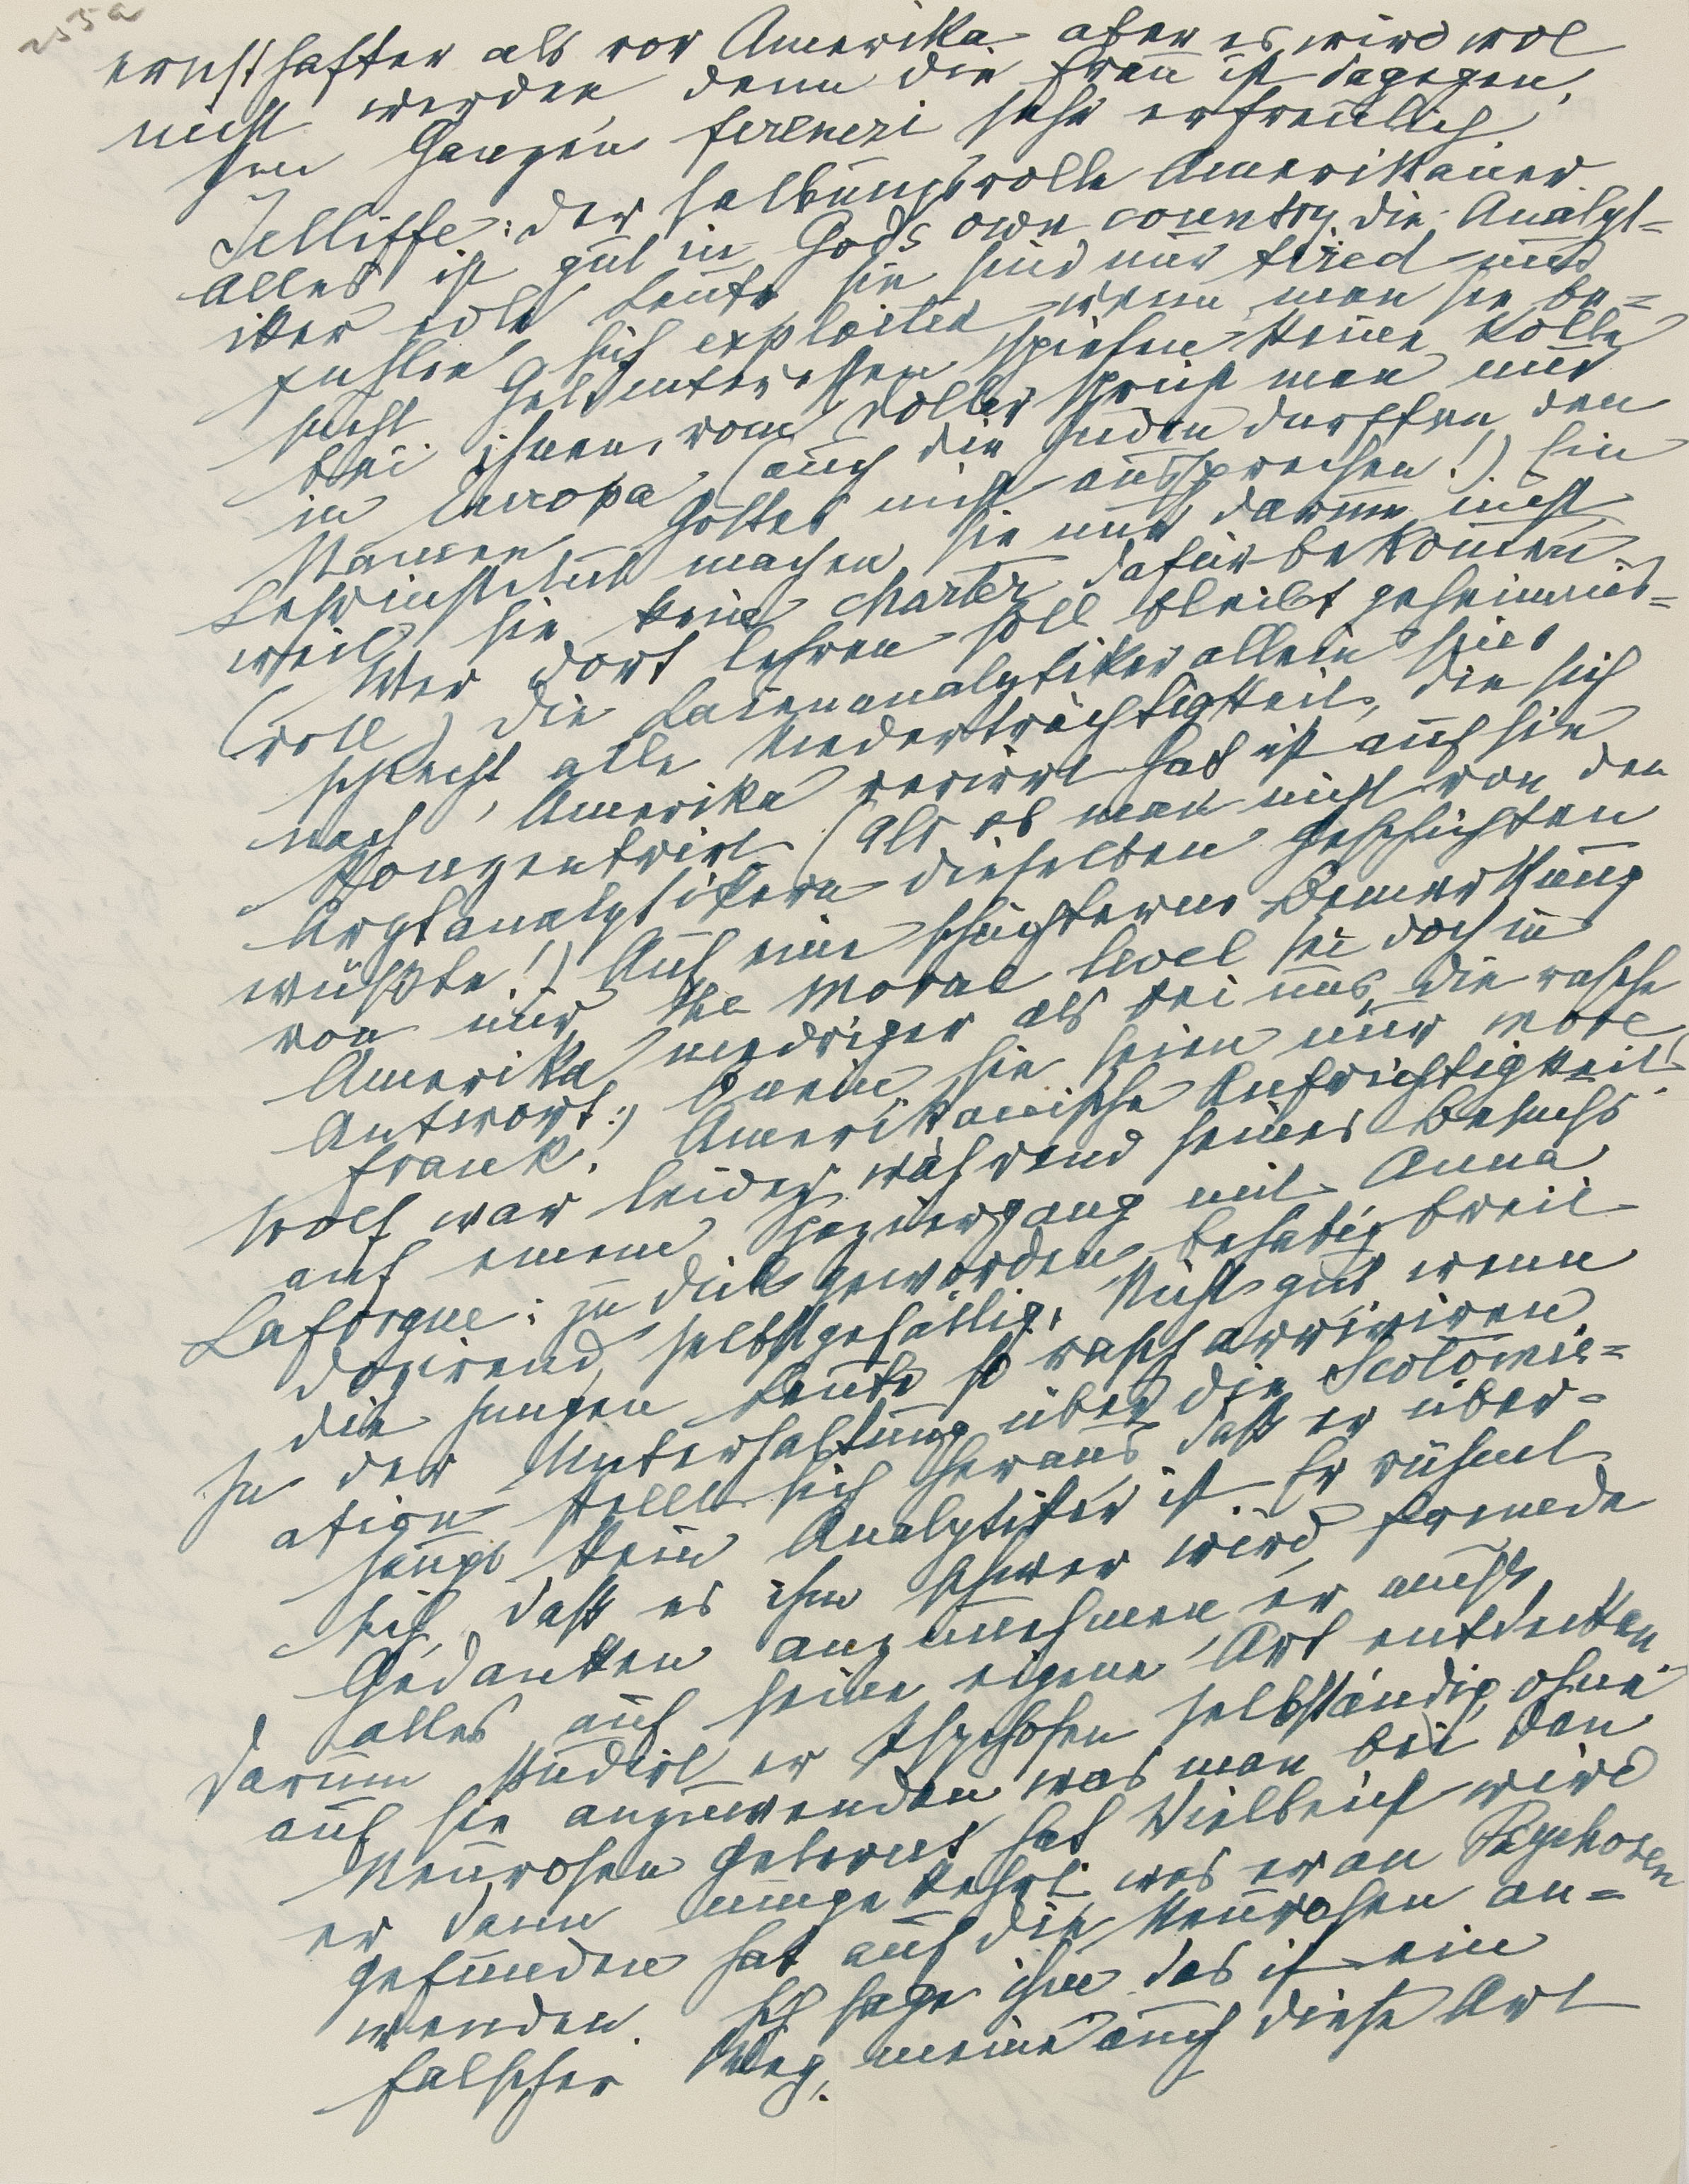 255a
ernsthafter als vor Amerika aber es wird wol
nicht werden denn die Frau ist dagegen,
Im Ganzen Ferenczi sehr erfreulich
Jelliffe: der salbungsvolle Amerikaner.
Alles ist gut in Gods own country, die Analyt-
iker edle Leute sie sind nur tired und
fühlen sich exploited wenn man sie be-
sucht Geldinteressen spielen keine Rolle
bei ihnen, vom Dollar spricht man nur
in Europa (auch die Juden durften den
Namen Gottes nicht aussprechen!) Ein
Lehrinstitut machen sie nur darum nicht
weil sie keine charter dafür bekommen
(Wer dort lehren soll bleibt geheimnis-
voll) die Laienanalytiker allein sind
schlecht, alle Niederträchtigkeit, die sich
nach Amerika verirrt hat ist auf sie
konzentrirt (Als ob man nicht von den
Arztanalytikern dieselben Geschichten
wüsste!) Auf eine schüchterne Bemerkung
von mir the moral level sei doch in
Amerika niedriger als bei uns, die rasche
Antwort: O nein, sie seien nur more
frank! Amerikanische Aufrichtigkeit!
Wolf war leider während seines Besuchs
auf einem Spaziergang mit Anna
Laforgue: zu dick geworden, behäbig breit
dozirend, selbstgefällig. Nicht gut wenn
die jungen Leute so rasch arriviren
In der Unterhaltung über die Scotomis-
ation stellt sich heraus dass er über-
haupt kein Analytiker ist. Er rühmt
sich, dass es ihm schwer wird fremde
Gedanken anzunehmen er muss
alles auf seine eigene Art entdecken
Darum studirt er Psychosen selbständig, ohne
auf sie anzuwenden was man bei den
Neurosen gelernt hat Vielleicht wird
er dann umgekehrt was er an Psychosen
gefunden hat auf die Neurosen an-
wenden. Ich sage ihm das ist ein
falscher Weg, meine auch diese Art